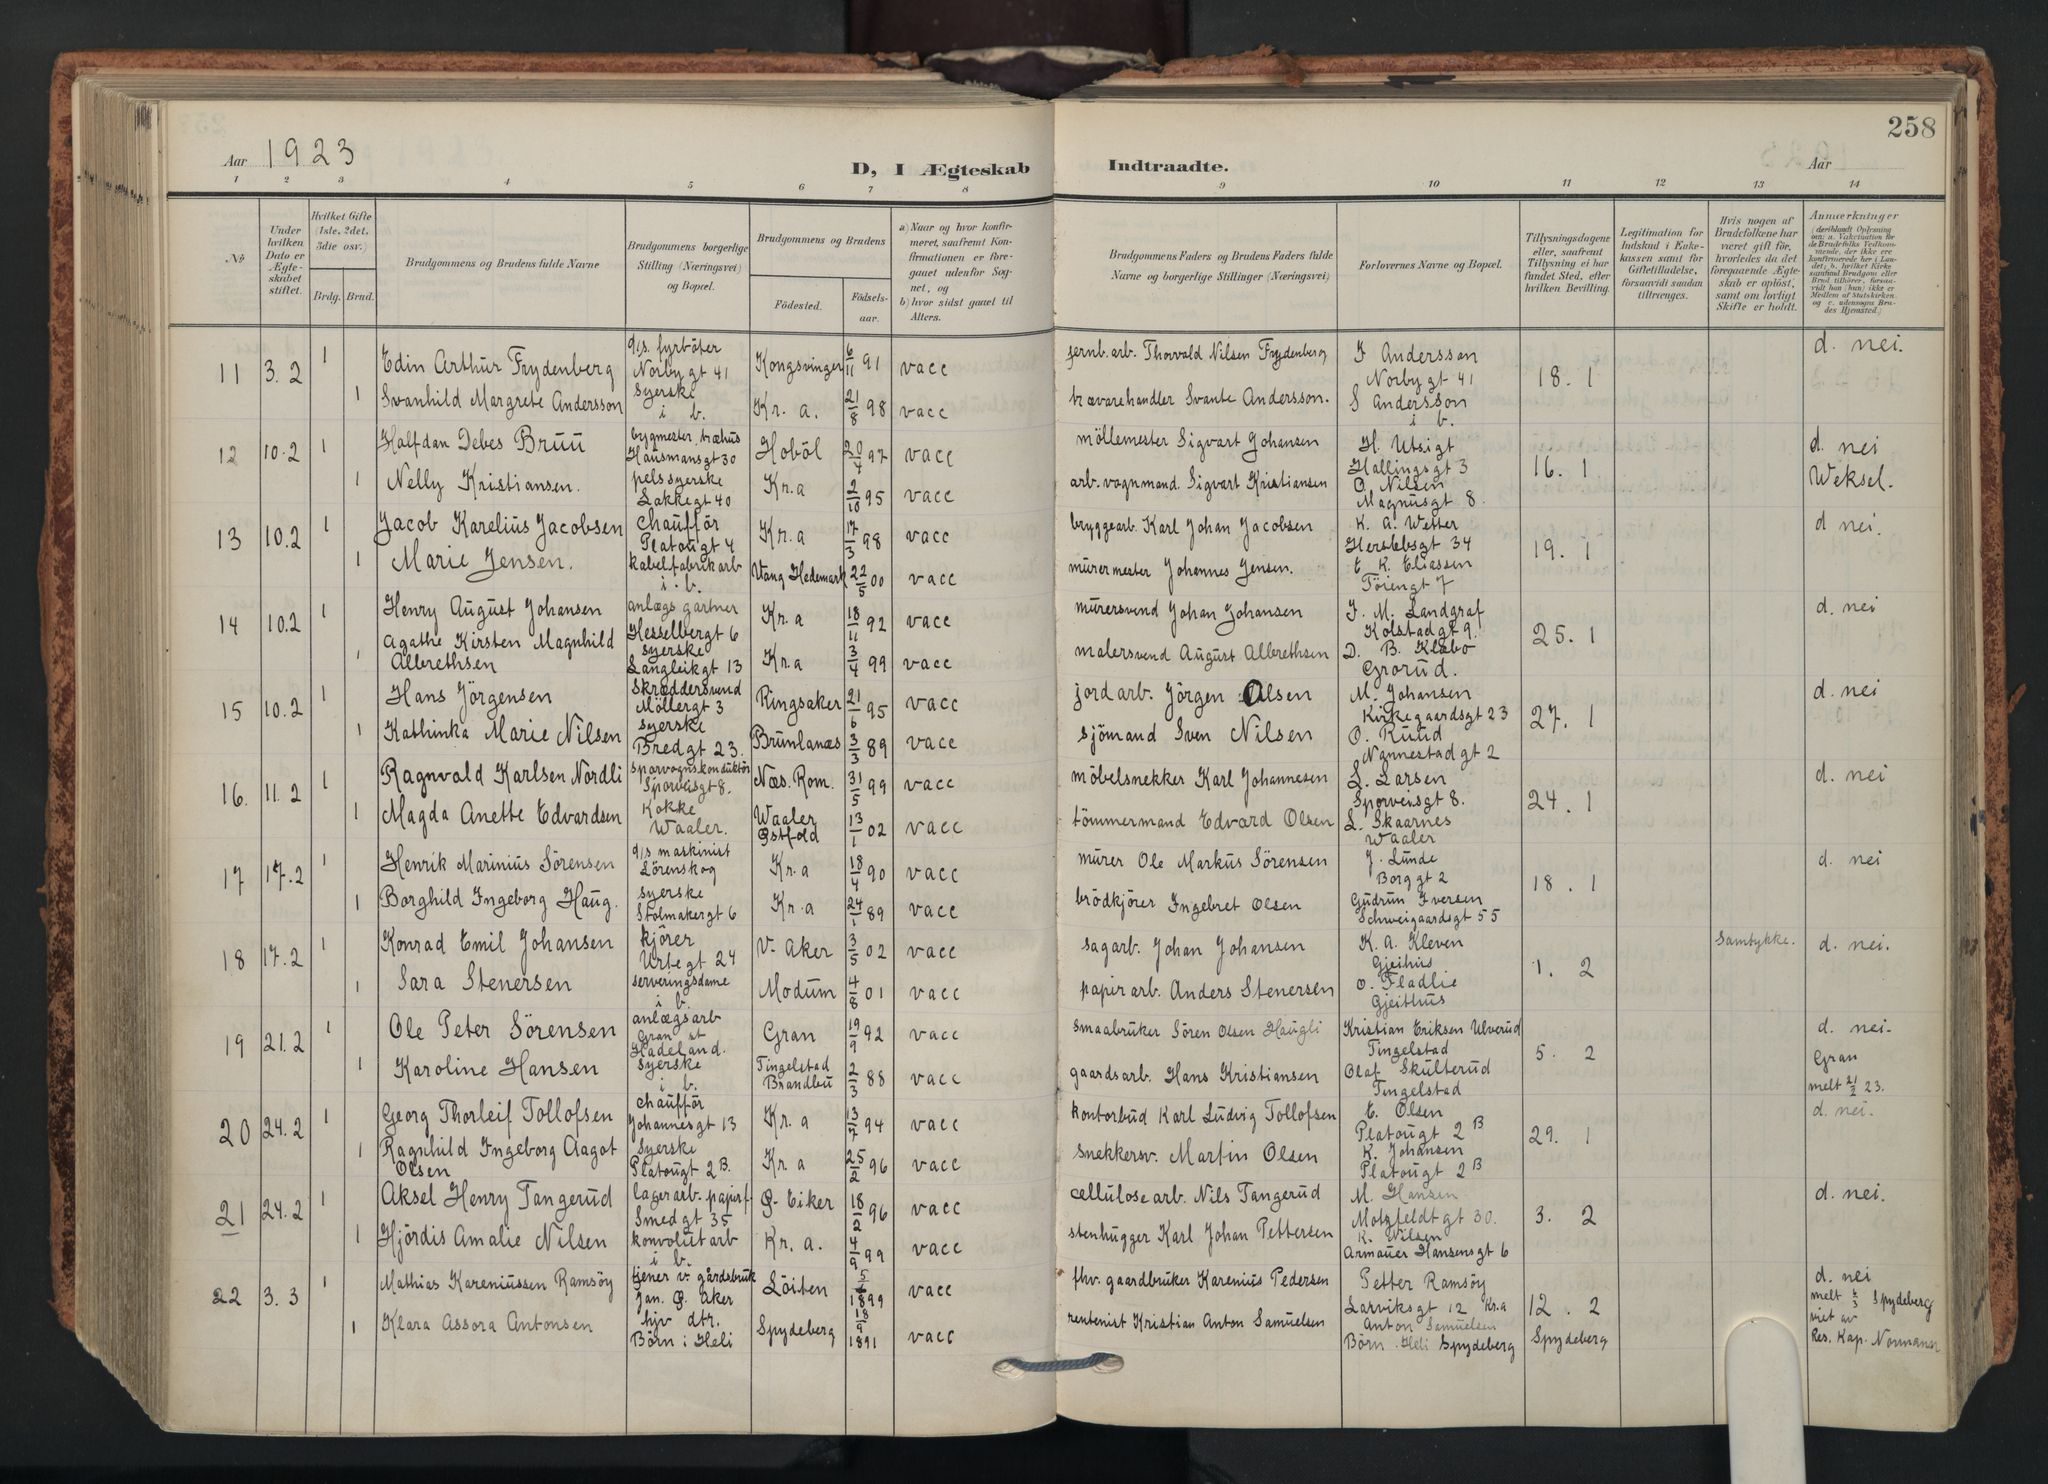 258
Aar 1923
D, I Ægteskab Indtraadte.
Aar
1 2 3 4 5 6 7 8 9 10 11 12 13 14
Nr
Under hvilken Dato er Ægteskabet stiftet.
Hvilket Gifte (1ste, 2det, 3die osv.)
Brdg. Brud.
Brudgommens og Brudens fulde Navne
Brudgommens borgerlige Stilling (Næringsvei) og Bopæl.
Brudgommens og Brudens
Fødested. Fødselsaar.
a) Naar og hvor konfirmeret, saafremt Konfirmationen er foregaaet udenfor Sognet, og
b) hvor sidst gaaet til Alters.
Brudgommens Faders og Brudens Faders fulde Navne og borgerlige Stillinger (Næringsvei)
Forlovernes Navne og Bopæl.
Tillysningsdagene eller, saafremt Tillysning ei har fundet Sted, efter hvilken Bevilling.
Legitimation for Indskud i Enkekassen samt for Giftetilladelse, forsaavidt saadan tiltrænges.
Hvis nogen af Brudefolkene har været gift før, hvorledes da det foregaaende Ægteskab er opløst, samt om lovligt Skifte er holdt.
Anmærkninger (deriblandt Oplysning om: a. Vakcination for de Brudefolks Vedkommende, der ikke ere konfirmerede her i Landet; b. hvilket Kirkesamfund Brudgom eller Brud tilhører, forsaavidt han (hun) ikke er Medlem af Statskirken og c. udensogns Brudes Hjemsted.)
11 3.2 1 Edin Arthur Frydenberg d/s. fyrböter Norbygt 41 Kongsvinger 6/11 91 vacc jernb.arb. Thorvald Nilsen Frydenberg J Andersson Norbygt 41 18.1 d. nei.
1 Svanhild Margrete Andersson syerske i b. Kr. a. 21/8 98 vacc trævarehandler Svante Andersson. S Andersson i b.
12 10.2 1 Halfdan Debes Bruu bygmester, træhus Hausmansgt 30 Hoböl 20/4 97 vacc möllemester Sigvart Johansen H. Utsigt Hallingsgt 3 16.1 d. nei
1 Nelly Kristiansen. pelssyerske Lakkegt 40 Kr.a 2/10 95 vacc arb. vognmand. Sigvart Kristiansen O. Nilsen Magnusgt 8. Weksel.
13 10.2 1 Jacob Karelius Jacobsen chaufför Platougt 4 Kr.a 17/3 98 vacc bryggearb. Karl Johan Jacobsen K. A. Wetter Herslebsgt 34 19.1 d nei
1 Marie Jensen. kabelfabrikarb i.b. Vang Hedemark 22/5 00 vacc murermester Johannes Jensen. E K. Eliassen Töiengt 7
14 10.2 1 Henry August Johansen anlægsgartner Hesselbergt 6 Kr.a 18/11 92 vacc murersvend Johan Johansen J. M. Landgraf Kolstadgt 9. 25.1 d. nei
1 Agathe Kirsten Magnhild Albrethsen syerske Langleikgt 13 Kr.a 3/4 99 vacc malersvend August Albrethsen D. B. Klæbo Grorud.
15 10.2 1 Hans Jörgensen Skræddersvend Möllergt 3 Ringsaker 21/6 95 vacc jordarb. Jörgen Olsen M. Johansen Kirkegaardsgt 23 27.1 d. nei
1 Kathinka Marie Nilsen syerske Bredgt 23. Brunlanæs 3/3 89 vacc sjömand Sven Nilsen O. Ruud Nannestadgt 2
16. 11.2 1 Ragnvald Karlsen Nordli sporvognskonduktör Sporveisgt 8. Næs. Rom. 31/5 99 vacc möbelsnekker Karl Johannesen L. Larsen Sporveisgt 8. 24.1 d. nei
1 Magda Anette Edvardsen Kokke Waaler. Waaler Östfold 13/1 02 vacc tömmermand Edvard Olsen L. Skaarnes Waaler
17 17.2 1 Henrik Marinius Sörensen d/s maskinist Lörenskog Kr.a 18/4 90 vacc murer Ole Markus Sörensen J. Lunde Borggt 2 18.1 d. nei
1 Borghild Ingeborg Haug. syerske Stolmakergt 6 Kr.a 24/1 89 vacc brödkjörer Ingebret Olsen Gudrun Iversen Schweigaardsgt 55
18 17.2 1 Konrad Emil Johansen kjörer Urtegt 24 V. Aker 3/5 02 vacc sagarb. Johan Johansen K. A. Kleven Gjeihus 1.2 Samtykke. d. nei.
1 Sara Stenersen serveringsdame i b. Modum 4/8 01 vacc papirarb. Anders Stenersen O. Fladlie Gjeithus
19 21.2 1 Ole Peter Sörensen anlægsarb Gran st Hadeland. Gran 19/9 92 vacc smaabruker Sören Olsen Haugli Kristian Eriksen Ulverud Tingelstad 5.2 d. nei.
1 Karoline Hansen syerske i b. Tingelstad Brandbu 2/3 88 vacc gaardsarb. Hans Kristiansen Olaf Skulterud Tingelstad Gran melt 21/2 23.
20 24.2 1 Georg Thorleif Tollofsen chaufför Johannesgt 13 Kr. a 13/7 94 vacc kontorbud Karl Ludvig Tollofsen E. Olsen Platougt 2 B 29.1 d. nei.
1 Ragnhild Ingeborg Aagot Olsen Syerske Platougt 2 B. Kr. a 25/2 96 vacc snekkersv. Martin Olsen K. Johansen Platougt 2 B
21 24.2 1 Aksel Henry Tangerud lagerarb. papirf. Smedgt 35 Ö. Eiker 18/2 96 vacc cellulosearb. Nils Tangerud M. Hansen Motzfeldtgt 30. 3.2 d. nei.
1 Hjördis Amalie Nilsen konvolutarb i b. Kr. a. 4/9 99 vacc stenhugger Karl Johan Pettersen K. Nilsen Armauer Hansensgt 6
22 3.3 1 Mathias Kareniussen Ramsöy tjener v. gårdsbruk Jan. Ö. Aker Löiten 1899 vacc fhv. gaardbruker Karenius Pedersen Petter Ramsöy Larviksgt 12 Kr.a 12.2 d. nei melt 4/3 Spydeberg
1 Klara Assora Antonsen hjv dtr. Börn i Heli Spydeberg 18/9 1891 vacc rentenist Kristian Anton Samuelsen Anton Samuelsen Börn Heli Spydeberg Spydeberg viet av Res. Kap. Normann